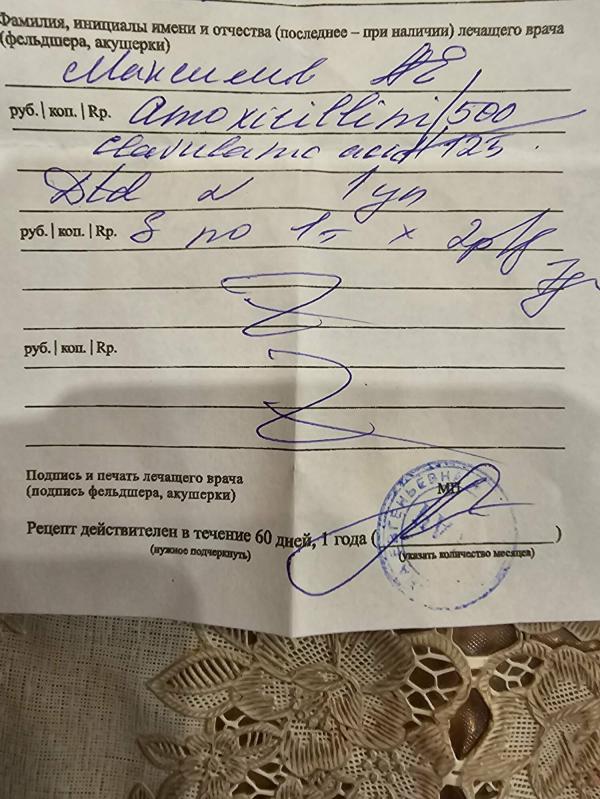 Фамилия, инициалы имени и отчества (последнее – при наличии) лечащего врача
(фельдшера, акушерки)
Максимов АЕ
руб. | коп. | Rp. Amoxicillini/500
clavulamo acid 125
Dtd N 1 уп
руб. | коп. | Rp. S по 1т х 2р/д
руб. | коп. | Rp.
Подпись и печать лечащего врача
(подпись фельдшера, акушерки)
МП
Рецепт действителен в течение 60 дней, 1 года ( )
(нужное подчеркнуть) (указать количество месяцев)